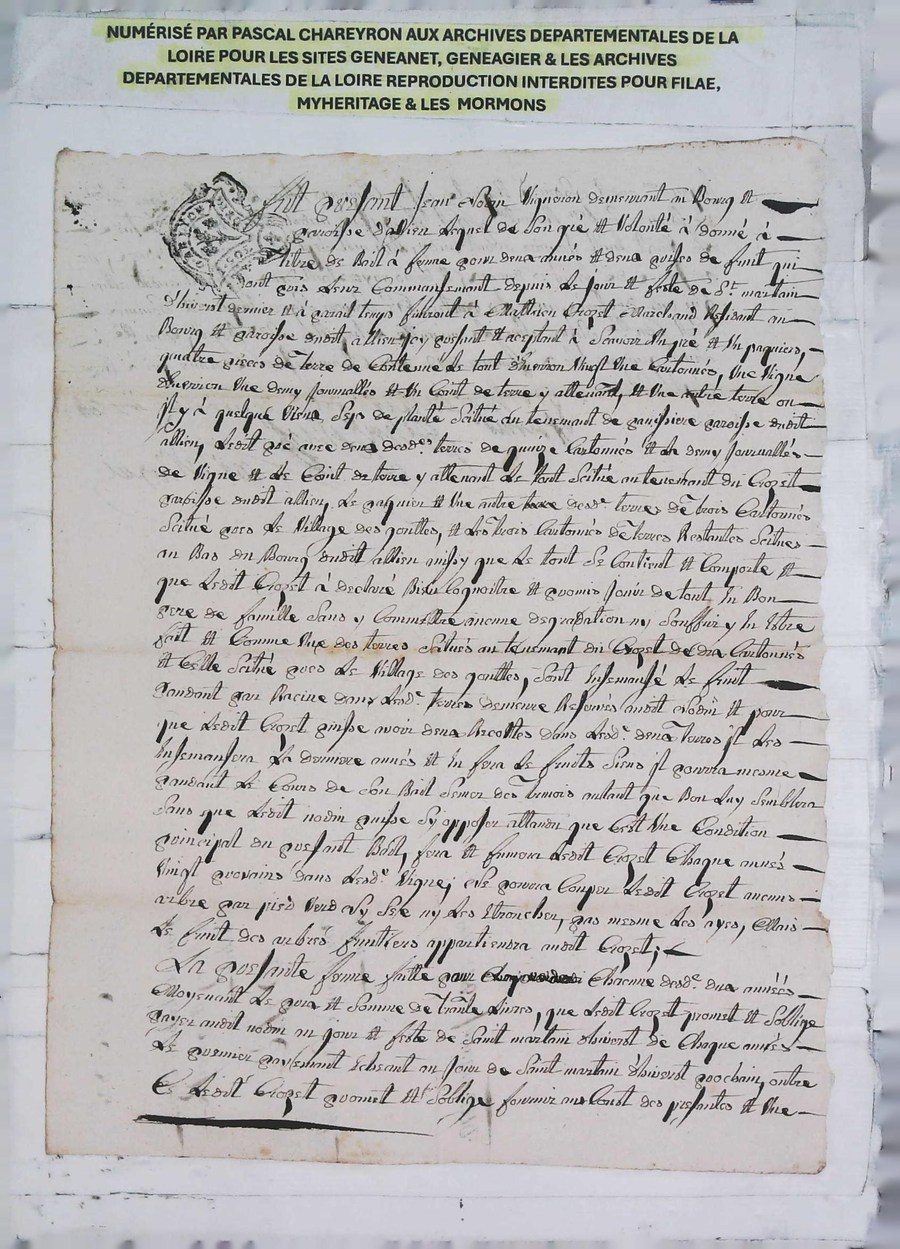 NUMÉRISÉ PAR PASCAL CHAREYRON AUX ARCHIVES DEPARTEMENTALES DE LA
LOIRE POUR LES SITES GENEANET, GENEAGIER & LES ARCHIVES
DEPARTEMENTALES DE LA LOIRE REPRODUCTION INTERDITES POUR FILAE,
MYHERITAGE & LES MORMONS
fut present Jean Vigneron demeurant au Bourg et
paroisse d'allieu lequel de son gré et Volonté à donné à
titre de Bail à ferme pour deux années et deux prises de fruit qui
ont pris Leur Commansemant depuis le jour et feste de St. martain
d'hivert dernier et à parail temps finiront à Mathieu Crozet Marchand Residant au
Bourg et paroisse dudit allieu icy present et aceptant à Scavoir Un pré et Un paquier,
quatre pieces de terre de Contenue le tout d'huviron Vingt Une Cartonnés, Une Vigne
d'huviron Une demy Journallés et Un Coint de terre y allenant, et Une autre terre ou
il y à quelque Vieux Seps de planté Scitué au tenemant de paroisse dudit
allieu, Ledit pré avec deux desd.es terres de quinze Cartonnés et La demy Journallés
de Vigne et Le Coint de terre y allenant Le tout Scitué au tenemant du Crozet
paroisse dudit allieu, Le paquier et Une autre desd.s terres de trois Cartonnés
Scitué pres Le Village des gouttes, et Les trois Cartonnés de terres Restantes Scitués
au Bas du Bourg dudit allieu ainsy que Le tout Se Contient et Comporte et
que Ledit Crozet à declaré Bien Cognoitre et promis Jouir de tout En Bon
pere de famille Sans y Commettre aucune degradation ny Souffrir y En Estre
fait et Comme Une des terres Scitués au tenemant du Crozet de dix Cartonnés
et Celle Scitué pres Le Village des gouttes, Sont Ensemansé Le fruit
pandant par Racine dans Lesd.s terres demeure Reservés audit Nodin et pour
que Ledit Crozet puisse avoir deux Recoltes dans Lesd.s deux terres il Les
Ensemansera La derniere année et En fera Le fruits Siens il pourra mesme
pandant Le Cours de Son Bail Semer des tremois autant que Bon Luy Semblera
Sans que Ledit nodin puisse Sy opposer attandu que C'est Une Condition
principal du presant Bail, fera et fumera Ledit Crozet Chaque année
Vingt provains dans Lesd.e Vigne; Ne pourra Couper Ledit Crozet aucuns
arbre par pied Verd Ny Sec ny Les Etroncher, pas mesme Les ayes, Mais
Le fruit des arbres fruitiers appartiendra audit Crozet;
La presante ferme faitte pour Chacune desd.es deux années
Moyenant Le prix et Somme de trante Livres, que Ledit Crozet promet et Soblige
payer audit nodin au jour et feste de Saint martain d'hivert de Chaque année
Le premier payemant Echeant au Jour de Saint martain d'hivert prochain, outre
Ce Ledit Crozet promet et Soblige fournir au Coust des presantes et Une